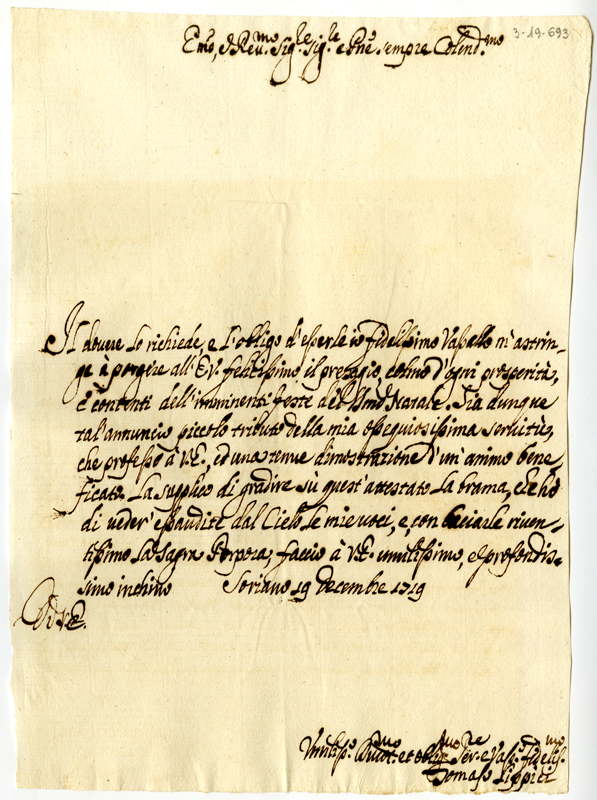 3-19-693
Em̃o, e Reu.mo Sig.re Sig.r e Pñe sempre Colend.mo
Il douere lo richiede, e l'obligo d'esserle io fidelissimo Vassallo m'astrin-
ge à porgire all'E.V. felicissimo il presagio colmo d'ogni prosperità,
e contenti dell'imminenti feste del SSmo Natale. Sia dunque
tal'annuncio piccolo tributo della mia ossequiosissima seruitù,
che professo à V.E., ed una tenue dimostrazione d'un animo bene,
ficato. La supplico di gradire sù quest'attestato la brama, che hò
di ueder' esaudite dal Cielo le mie uoci, e con baciarle riuen-
tissimo la sagra Porpora, faccio à V.E. umilissimo, e profondis-
simo inchino Soriano 19 Decembre 1719
D.V.E.
Umiliss.o Diuot.mo et oblig.mo Ser.re e Vass.o fidelis.mo
Tomaso Lippici